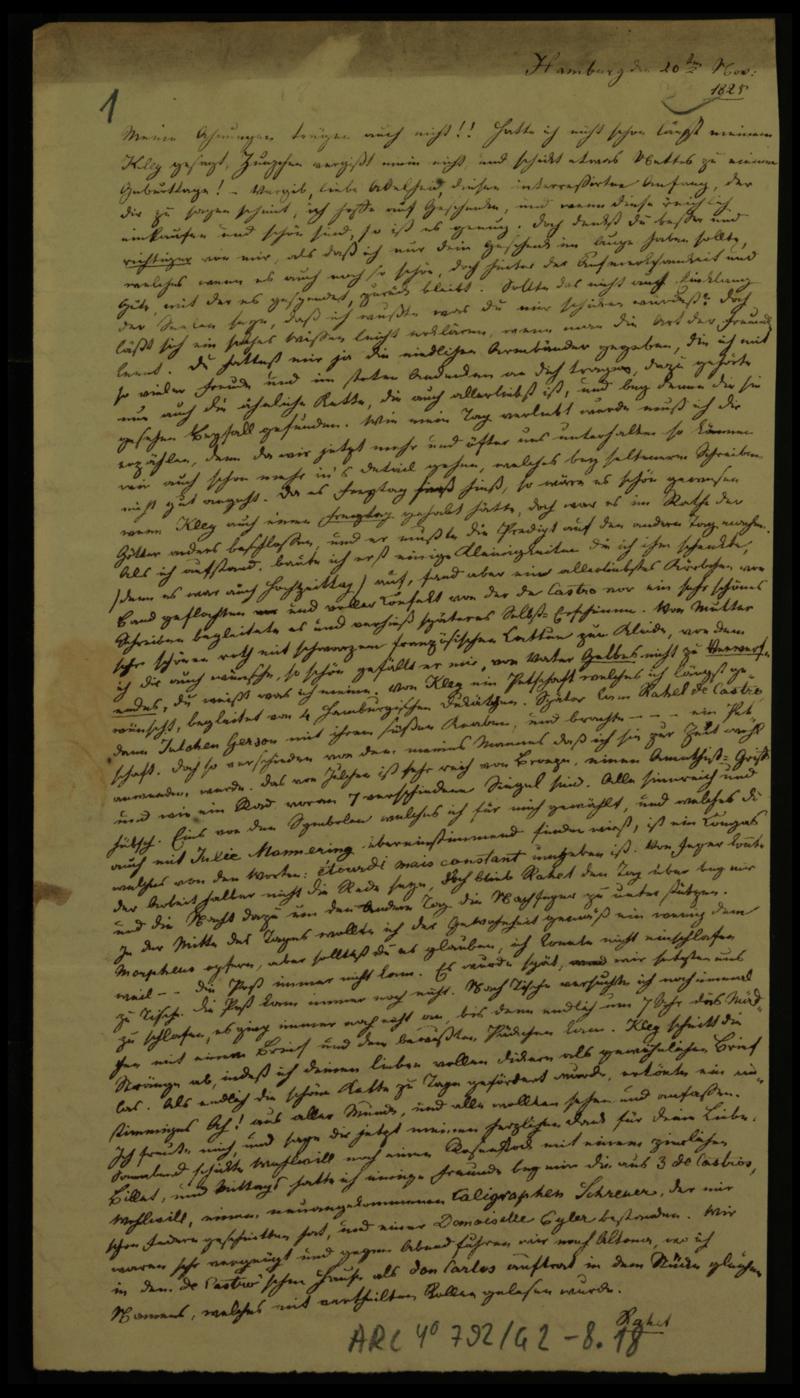 Hamburg den 20ten Nov:
1825
1
Meine Ahnungen trügen auch nicht!! Hatte ich nicht schon längst meinem
Kley gesagt, Zunzchen vergißt mein nicht, und schickt etwas Nettes zu meinem
Geburttage! – Vergib, liebe Adelheid, diesen interressirten Anfang, der
dir zu sagen scheint, ich hoffe auf Geschenke, und wenn diese reichlich
einlaufen und schön sind, so ist es genug. Doch denkst du besser und
richtiger von mir, als daß ich nur dein Geschenk im Auge haben sollte,
welches wenn es auch noch so schön, doch hinter der Aufmerksamkeit und
Güte, mit der es gespendet, zurück bleibt. Sollte das nicht auch Einklang
der Seelen sein, daß ich wußte was du mir schicken würdest? Doch
läßt sich ein solches Wissen leicht erklären, wenn man die Art der Freundin
kennt. Du hattest mir ja die niedlichen Armbänder gegeben, die ich mit
so vieler Freude und im steten Andenken an dich trage, dazu gehörte
nun auch die ähnliche Kette, die auch allerliebst ist, und bey denen die sie
gesehen Beyfall gefunden. Wie mein Tag verlebt wurde muß ich dir
erzählen, denn da wir jetzt mehr und öfter uns unterhalten so können
wir auch schon mehr in's Detail gehen, welches bey seltenerm Schreiben
nicht gut angeht. Da es Freytag hieß, so wäre es schön gewesen
wenn Kley auch einen Freytag gehabt hätte, doch war es im Rathe der
Götter anders beschlossen, und er mußte die Predigt auf den andern Tag machen.
Als ich aufstand, baute ich erst einige Kleinigkeiten die ich ihm schenkte,
(denn es war auch Hochzeittag) auf, fand aber ein allerliebstes Körbchen von
Band geflochten und voller Confekt von der de Castro vor ein sehr schönes
Schreiben begleitete es und verhieß späteres Selbst-Erscheinen. Von Mutter
sehr schönen roth mit schwarzen französischen Cattun zum Kleide, von dem
ich dir auch wünschte, so schön gefällt er mir, von Vater Gelbes nicht zu Verwerf-
endes, du weißt was ich meine. Von Kley ein Petschaft welches ich längst ge-
wünscht, begleitet von 4 Hamburgischen Dukätchen. Später kam Rahel de Castro,
dann Julchen Gerson mit ihrem süßen Knaben, und brachte – – – ein Pet-
schaft. Doch so verschieden von dem meines Mannes daß ich sie zur Zeit auch
anwenden werde. Das von Julchen ist sehr reich von Bronze, einen Amethist-Griff
und wie ein Rad woran 7 verschiedene Siegel sind. Alle sinnreich und
hübsch. Eins von den Symbolen welches ich für mich gewählt, und welches du
auch mit Julie Mannering übereinstimmend finden wirst, ist ein Compas
welches von den Worten: étourdi mais constant umgeben ist. Von konnte
der Arbeit halber nicht die Rede sein, doch blieb Rahel den Tag über bey mir
und die Nacht dazu um den andern Tag die Nachfeyer zu unterstützen.
In der Mitte des Tages wollte ich der Gewohnheit gemäß ein wenig dem
Morpheus opfern, aber solltest du es glauben, ich konnte nicht einschlafen
weil – – die Post immer nicht kam. Es wurde spät, wir setzten uns
zu Tische. Die Post kam immer noch nicht. Nach Tische versuchte ich noch einmal
zu schlafen, es ging immer noch nicht an, bis denn endlich um 7 Uhr das Mäd-
chen mit einem Brief und dem bewußten Päckchen kam. Kley schnitt die
Stränge ab, indeß ich deinen lieben vollen dickern als gewöhnlichen Brief
las. Als endlich die schöne Kette zu Tage gefördert wurde, ertönte ein ein-
stimmiges Ach! aus aller Munde, und alle wollten sehen und anfassen.
Ich freute mich, und sage dir jetzt meinen herzlichen Dank für deine Liebe.
Sonnabend schickte Wohlwill noch einen Rosenstock mit einem zierlichen
Billet, und Mittags hatte ich einige Freunde bey mir die aus 3 de Castros,
Wohlwill, einem neuangekommenen Caligraphen Schreuer, der mir
schon Federn geschnitten hat, und einer Demoiselle Eyler bestanden. Wir
waren sehr vergnügt und gegen Abend fuhren wir nach Altona, wo ich
in dem de Castro'schen Hause als Don Carlos auftrat in dem Stücke gleichen
Namens, welches mit vertheilten Rollen gelesen wurde.
Rahel
ARC 4° 792/G2-8.18